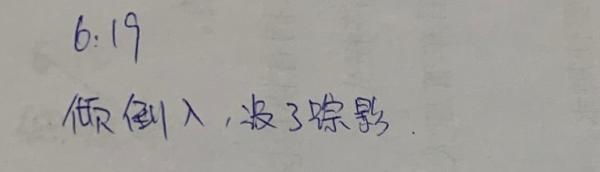 6:19
倾倒入，没了踪影.